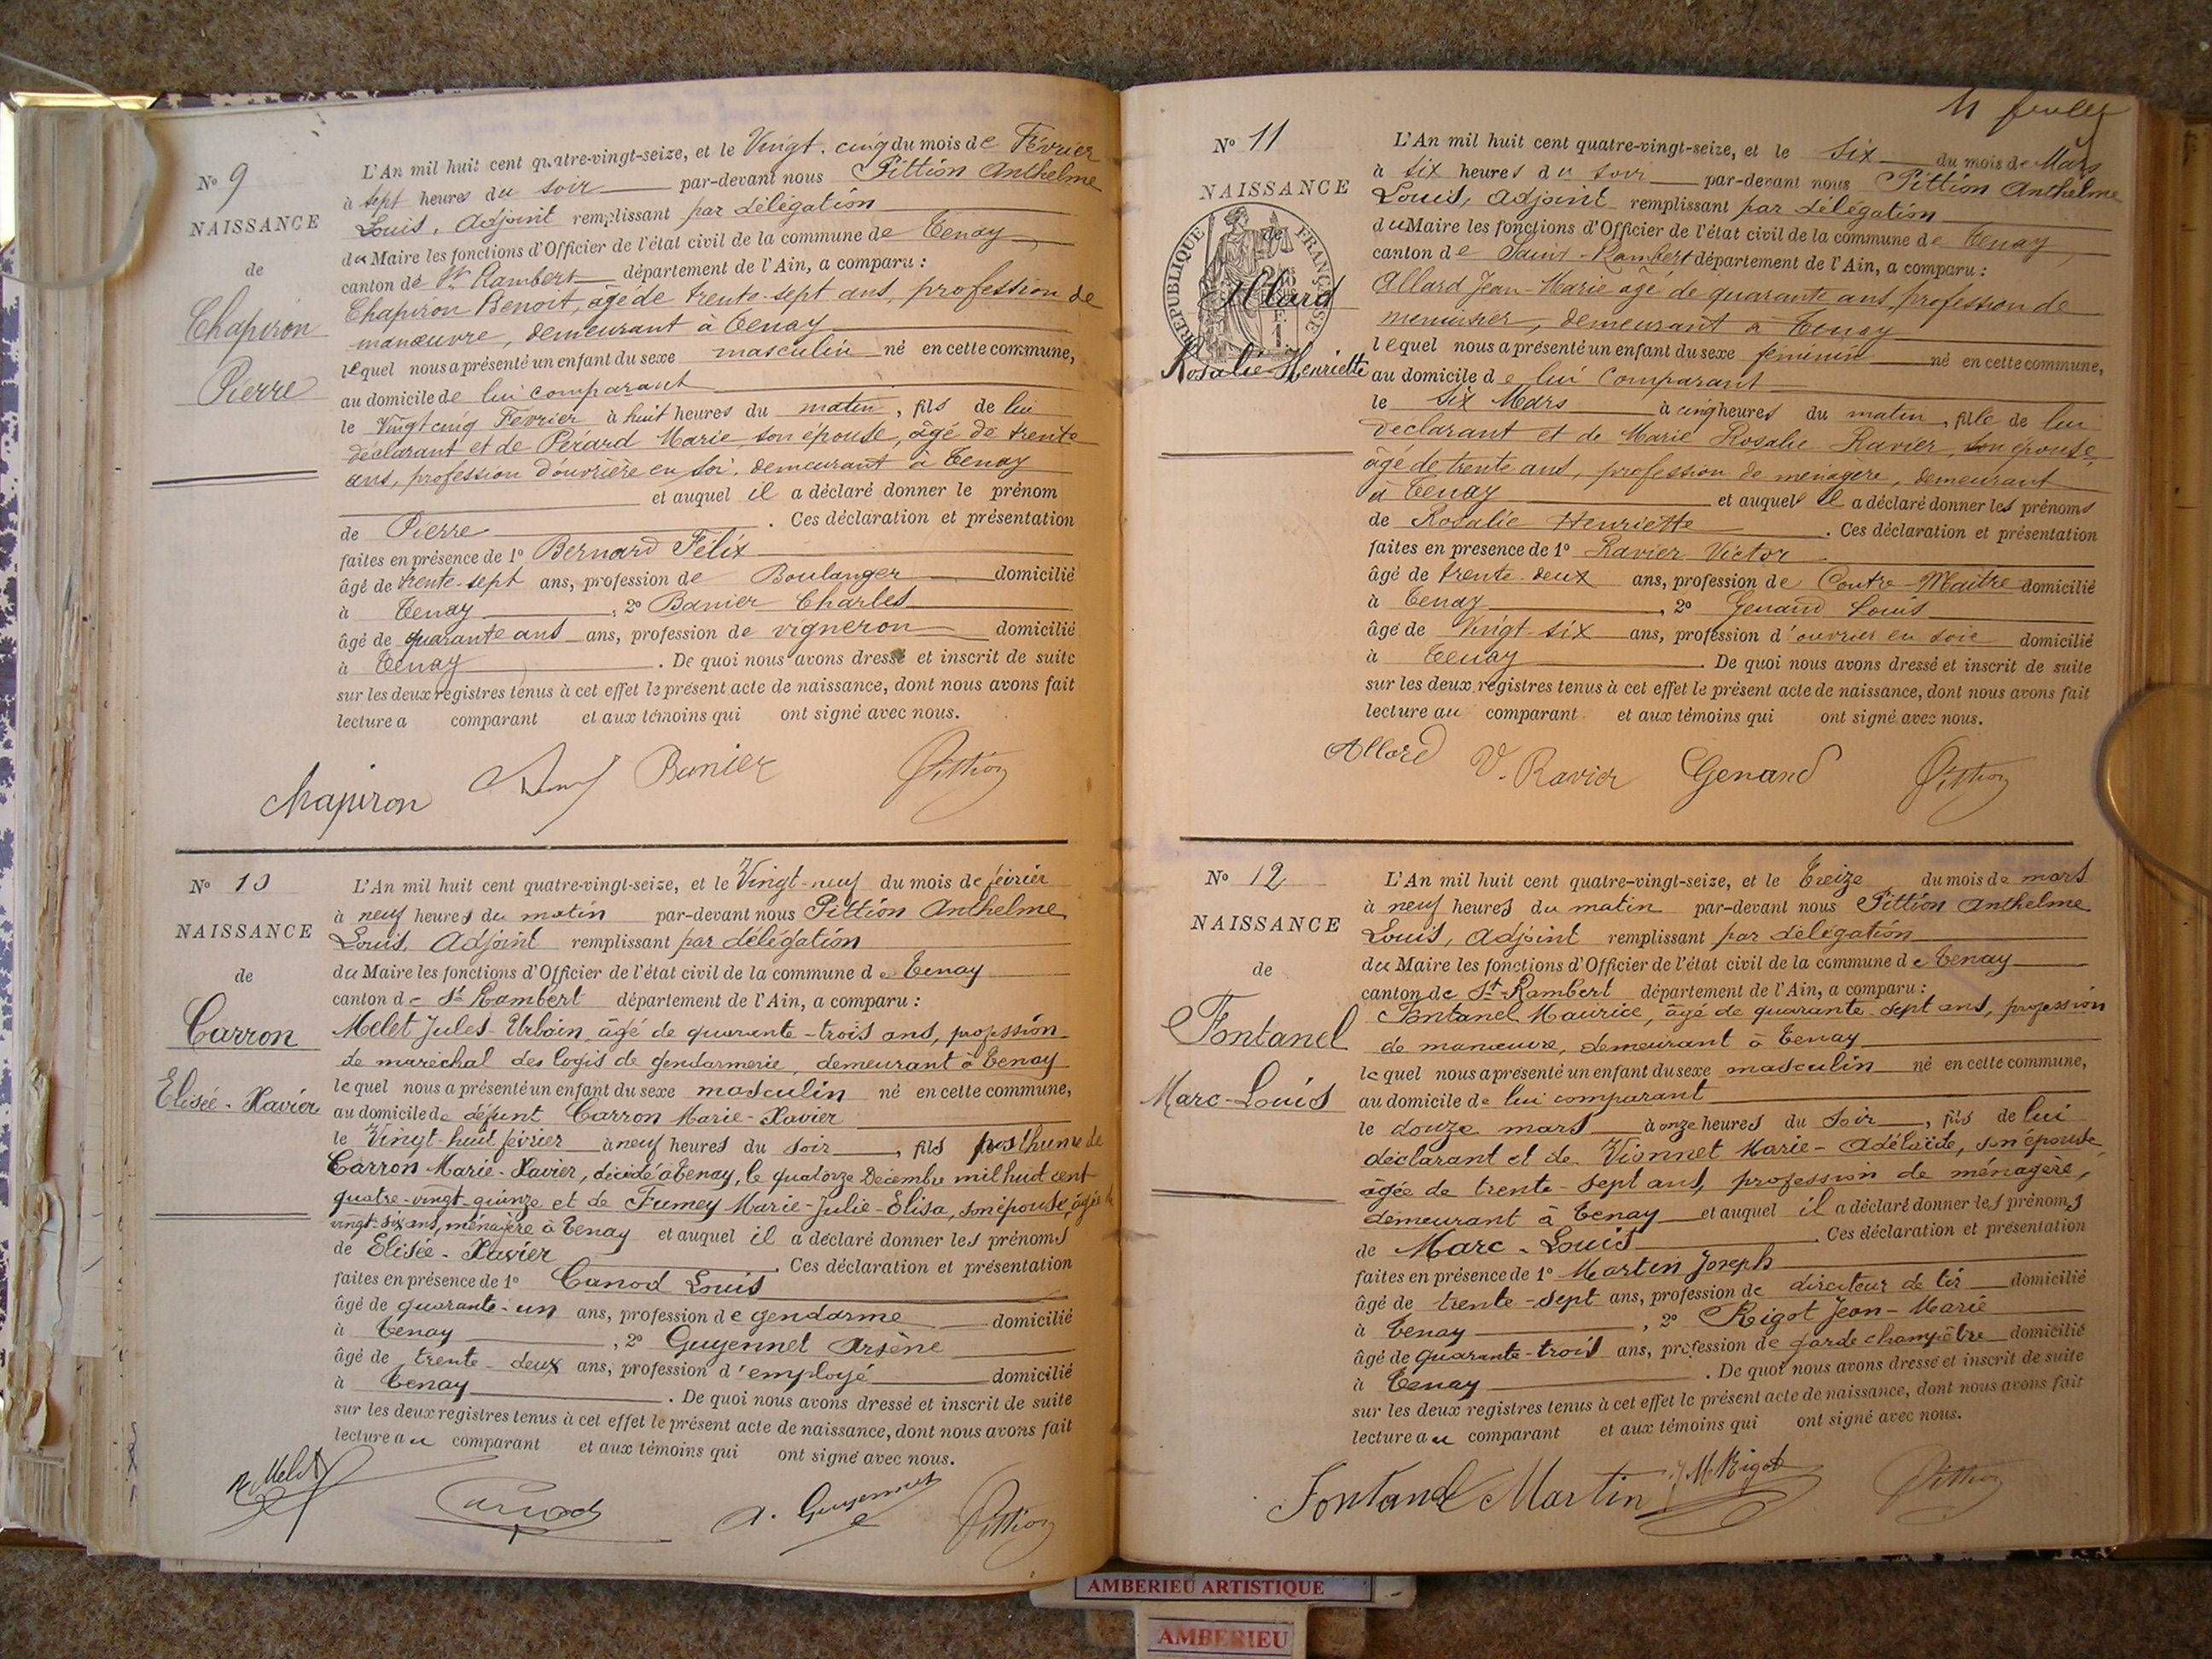 N° 9
NAISSANCE
de
Chapiron
Pierre
L'An mil huit cent quatre-vingt-seize, et le Vingt-cinq du mois de Février
à sept heures du soir par-devant nous Pittion Anthelme
Louis, Adjoint remplissant par délégation
du Maire les fonctions d'Officier de l'état civil de la commune de Tenay
canton de St Rambert département de l'Ain, a comparu :
Chapiron Benoît, âgé de trente-sept ans, profession de
manœuvre, demeurant à Tenay
lequel nous a présenté un enfant du sexe masculin né en cette commune,
au domicile de lui comparant
le Vingt cinq Février à huit heures du matin, fils de lui
déclarant et de Perard Marie son épouse, âgé de trente
ans, profession d'ouvrière en soi, demeurant à Tenay
et auquel il a déclaré donner le prénom
de Pierre. Ces déclaration et présentation
faites en présence de 1° Bernard Félix
âgé de trente-sept ans, profession de Boulanger domicilié
à Tenay, 2° Banier Charles
âgé de quarante ans ans, profession de vigneron domicilié
à Tenay. De quoi nous avons dressé et inscrit de suite
sur les deux registres tenus à cet effet le présent acte de naissance, dont nous avons fait
lecture a comparant et aux témoins qui ont signé avec nous.
Chapiron Banier Pittion
N° 10
NAISSANCE
de
Carron
Elisée-Xavier
L'An mil huit cent quatre-vingt-seize, et le Vingt-neuf du mois de février
à neuf heures du matin par-devant nous Pittion Anthelme
Louis, Adjoint remplissant par délégation
du Maire les fonctions d'Officier de l'état civil de la commune de Tenay
canton de St Rambert département de l'Ain, a comparu :
Melet Jules-Urbain, âgé de quarante-trois ans, profession
de maréchal des logis de gendarmerie, demeurant à Tenay
lequel nous a présenté un enfant du sexe masculin né en cette commune,
au domicile de défunt Carron Marie-Xavier
le Vingt-huit février à neuf heures du soir, fils posthume de
Carron Marie-Xavier, décédé à Tenay, le quatorze Décembre mil huit cent
quatre-vingt-quinze et de Fumey Marie-Julie-Elisa, son épouse, âgée de
vingt-six ans, ménagère à Tenay et auquel il a déclaré donner les prénoms
de Elisée-Xavier. Ces déclaration et présentation
faites en présence de 1° Canod Louis
âgé de quarante-un ans, profession de gendarme domicilié
à Tenay, 2° Guyennet Arsène
âgé de trente-deux ans, profession d'employé domicilié
à Tenay. De quoi nous avons dressé et inscrit de suite
sur les deux registres tenus à cet effet le présent acte de naissance, dont nous avons fait
lecture au comparant et aux témoins qui ont signé avec nous.
Melet Canod A. Guyennet Pittion
N° 11
NAISSANCE
de
RÉPUBLIQUE FRANÇAISE
Allard
Rosalie-Henriette
L'An mil huit cent quatre-vingt-seize, et le Six du mois de Mars
à six heures du soir par-devant nous Pittion Anthelme
Louis, Adjoint remplissant par délégation
du Maire les fonctions d'Officier de l'état civil de la commune de Tenay
canton de Saint-Rambert département de l'Ain, a comparu :
Allard Jean-Marie âgé de quarante ans, profession de
menuisier, demeurant à Tenay
lequel nous a présenté un enfant du sexe féminin né en cette commune,
au domicile de lui comparant
le Six Mars à cinq heures du matin, fille de lui
déclarant et de Marie Rosalie Ravier, son épouse,
âgé de trente ans, profession de ménagère, demeurant
à Tenay et auquel il a déclaré donner les prénoms
de Rosalie Henriette. Ces déclaration et présentation
faites en présence de 1° Ravier Victor
âgé de trente-deux ans, profession de Contre-Maître domicilié
à Tenay, 2° Genand Louis
âgé de Vingt-six ans, profession d'ouvrier en soie domicilié
à Tenay. De quoi nous avons dressé et inscrit de suite
sur les deux registres tenus à cet effet le présent acte de naissance, dont nous avons fait
lecture au comparant et aux témoins qui ont signé avec nous.
Allard V. Ravier Genand Pittion
N° 12
NAISSANCE
de
Fontanel
Marc-Louis
L'An mil huit cent quatre-vingt-seize, et le Treize du mois de mars
à neuf heures du matin par-devant nous Pittion Anthelme
Louis, Adjoint remplissant par délégation
du Maire les fonctions d'Officier de l'état civil de la commune de Tenay
canton de St-Rambert département de l'Ain, a comparu :
Fontanel Maurice, âgé de quarante-sept ans, profession
de manœuvre, demeurant à Tenay
lequel nous a présenté un enfant du sexe masculin né en cette commune,
au domicile de lui comparant
le douze mars à onze heures du soir, fils de lui
déclarant et de Vionnet Marie-Adélaïde, son épouse,
âgée de trente-sept ans, profession de ménagère,
demeurant à Tenay et auquel il a déclaré donner les prénoms
de Marc-Louis. Ces déclaration et présentation
faites en présence de 1° Martin Joseph
âgé de trente-sept ans, profession de directeur de tir domicilié
à Tenay, 2° Rigot Jean-Marie
âgé de quarante-trois ans, profession de garde champêtre domicilié
à Tenay. De quoi nous avons dressé et inscrit de suite
sur les deux registres tenus à cet effet le présent acte de naissance, dont nous avons fait
lecture au comparant et aux témoins qui ont signé avec nous.
Fontanel Martin J M Rigot Pittion
AMBERIEU ARTISTIQUE
AMBERIEU